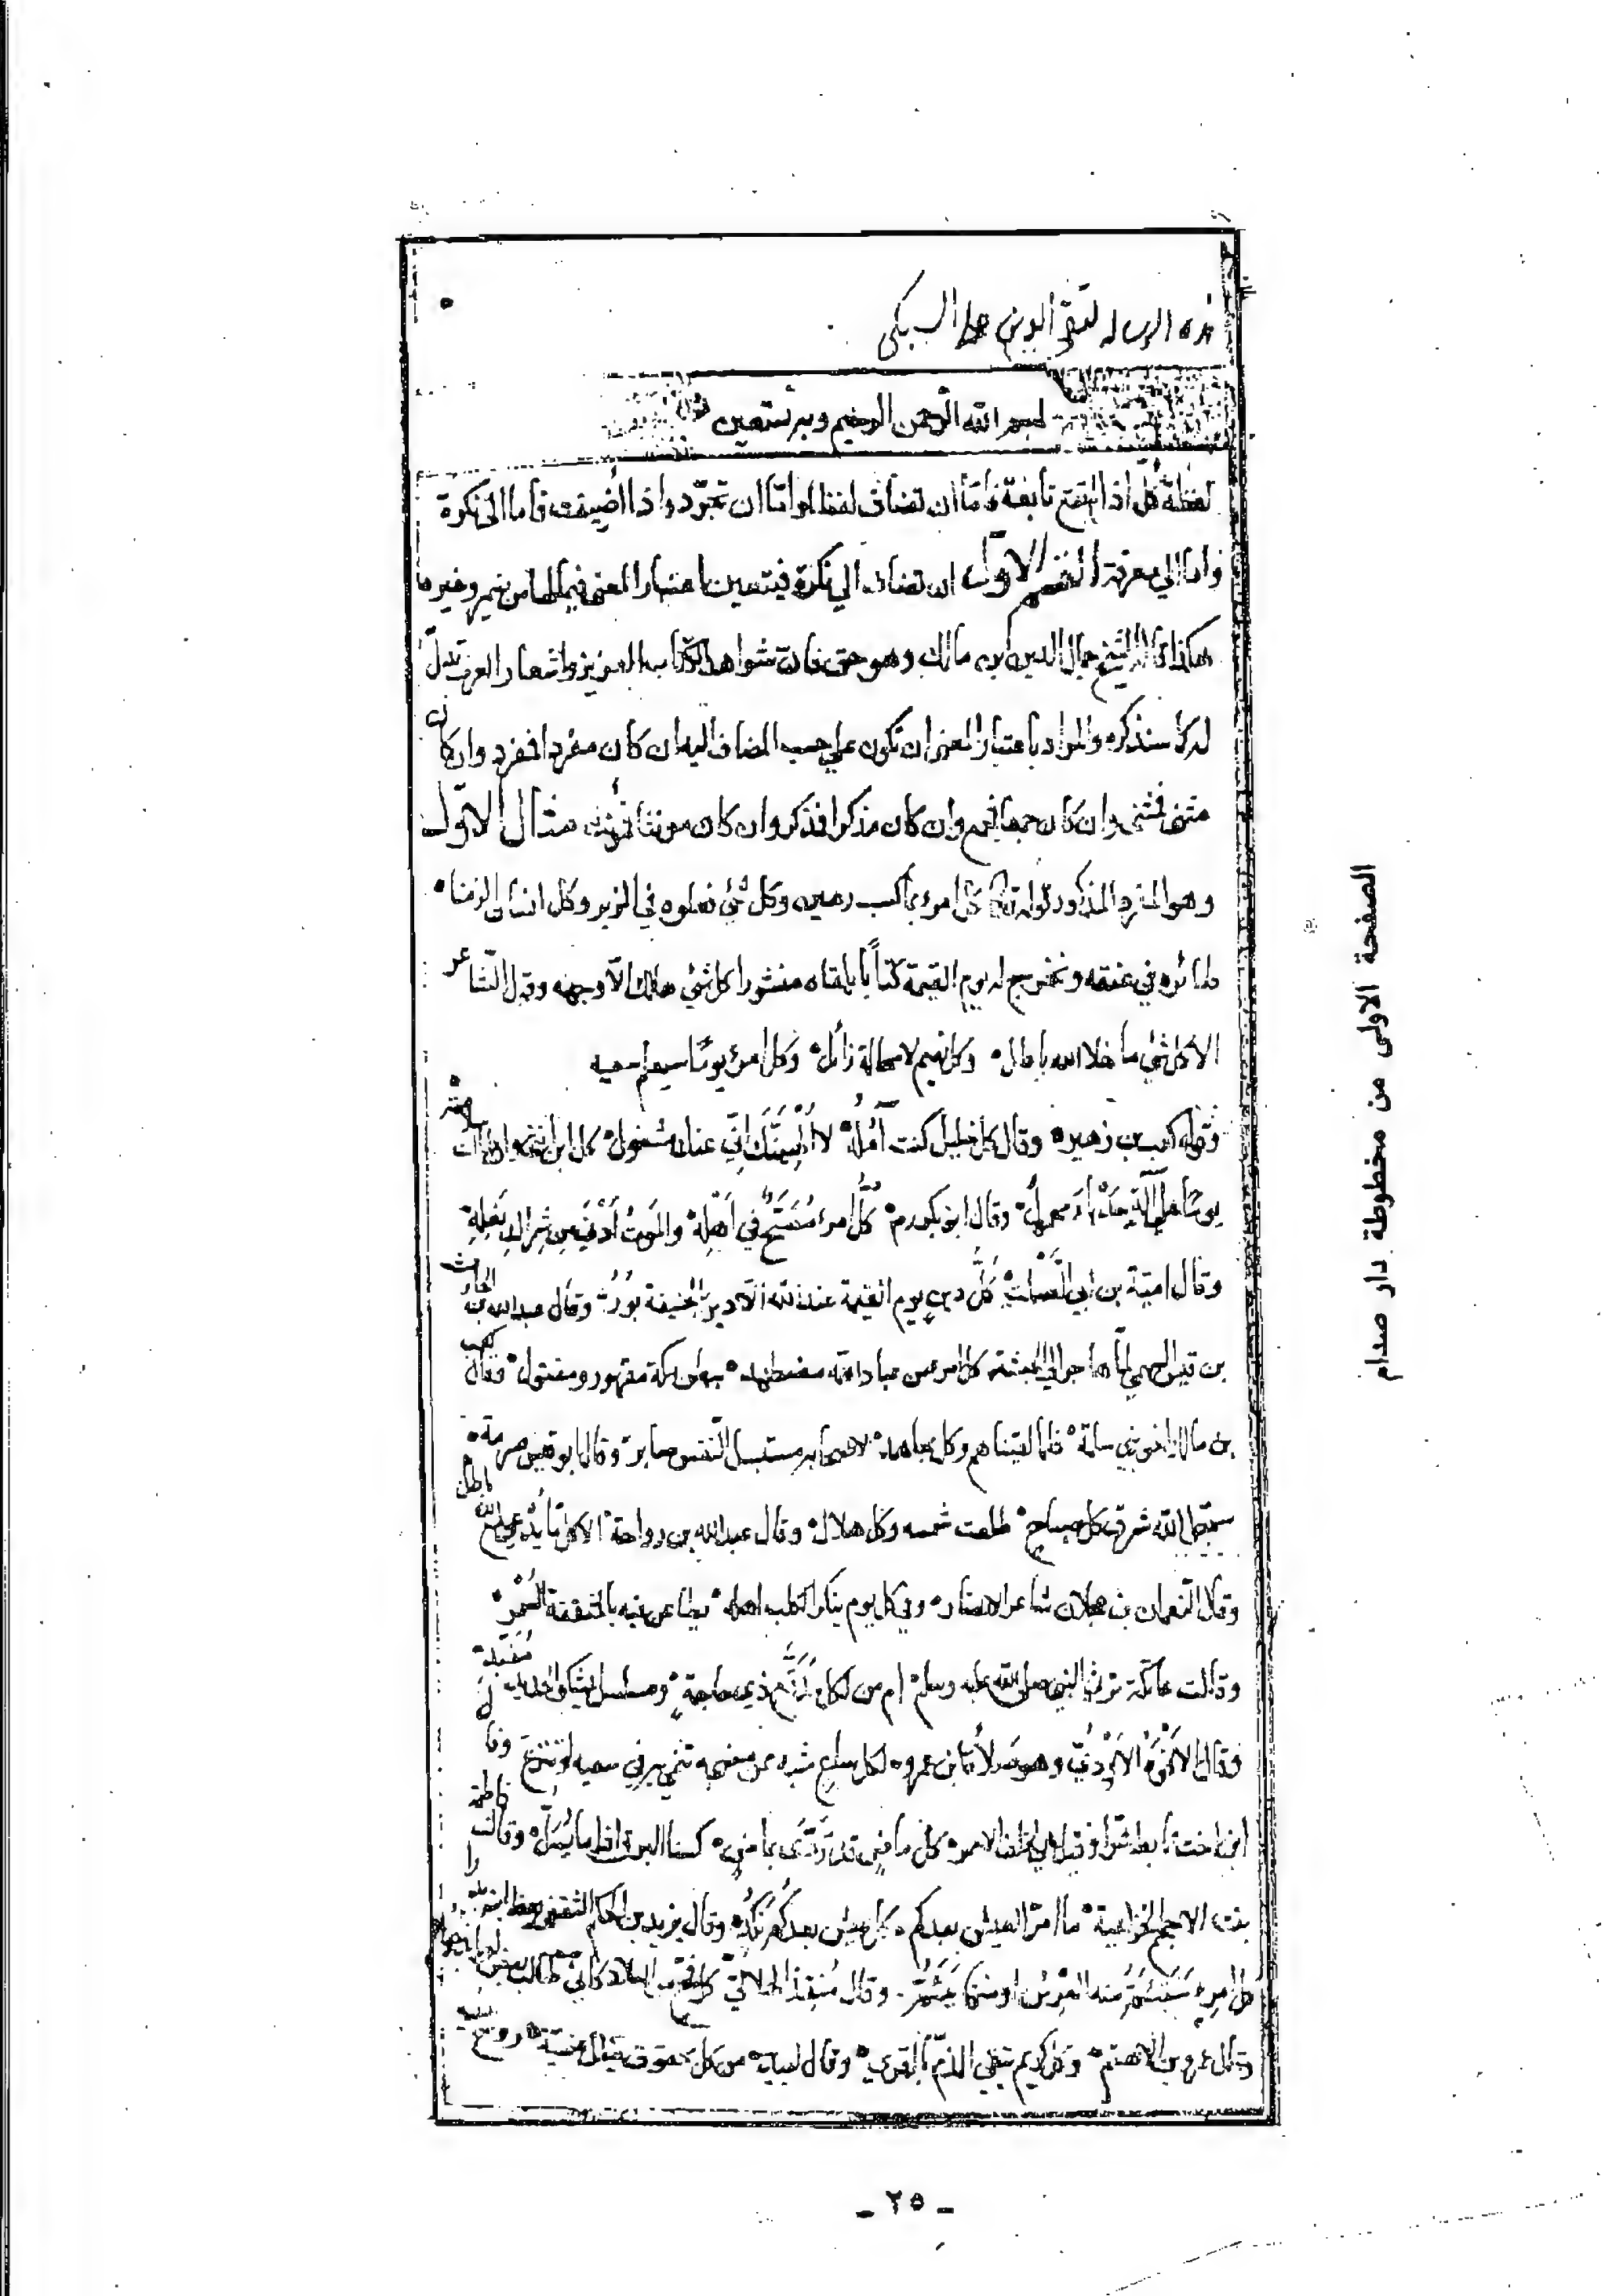 هذه الرساله لتقى الدين السبكى
بسم الله الرحمن الرحيم وبه نستعين
لفظة كل اذا لم تقع تابعة فاما ان تضاف لفظا واما ان تجرد واذا اضيفت فاما الى نكرة
واما الى معرفة القسم الاول ان تضاف الي نكرة فيتعين اعتبار المعنى فيما لها من ضمير وغيره
هكذا قال الشيخ جمال الدين ابن مالك وهو حق فان شواهد الكتاب العزيز واشعار العرب تدل
له كما سنذكره والمراد باعتبار المعنى ان تكون علي حسب المضاف اليه ان كان مفردا فمفرد وان كان
مثنى فمثنى وان كان جمعا فجمع وان كان مذكرا فمذكر وان كان مونثا فمؤنث مثال الاول
وهو المفرد المذكور قوله تعالى كل امرء بما كسب رهين وكل شئ فعلوه في الزبر وكل انسان الزمناه
طائره في عنقه ونخرج له يوم القيمة كتاباً يلقاه منشورا كل شئ هالك الّا وجهه وقول الشاعر
الا كل شئ ما خلا الله باطل وكل نعيم لا محالة زائل وكل امرئ يوما سيعلم سعيه
وقول كعب بن زهير وقال كل خليل كنت آمُلُهُ لا اُلهِيَنَّك اِنّي عنك مشغول كل ابن انثى وان طالت سلامته
يومًا على آلة حدباء محمول وقال ابو بكر رضه كُلُّ امرء مُصَبَّحٌ في اَهْلِهِ والمَوتُ أدْنَى مِن شِراكِ نَعلِهِ
وقال امية بن ابي الصَّلت كُلُّ دين يوم القيمة عند الله الّا دين الحنيفة بُورُ وقال عبد الله بن الحارث
بن قيس السهمي لمّا هاجر الى الحبشة كل امرء من عباد الله مضطهد ببطن مكة مقهور ومفتول وقال كعب
بن مالك اخو بني سلمة فلما لقيناهم وكل مجاهد لاصحابه مستبسل النفس صابر وقال ابو قيس صرمة
سبّحوا الله شرق كل صباح طلعت شمسه وكل هلال وقال عبد الله بن رواحة
وقال النعمان بن عجلان شاعر الانصار وفي كل يوم ينكر الكلب اهله
وقالت عاتكة ترثي النبي صلى الله عليه وسلم ام من لكل ذي حاجة ومسلسل يشكو الحديد
وقال الافوه الاودي وهو صلأة بن عمرو لكل ساع
ابن اخت تابط شرا وقيل لخلف الاحمر كل ماض قد تردى بماض كسنا البرق اذا ما يُسَلّ وقالت فاطمة
بنت الاحجم الخزاعية ما امرّ العيش بعدكم كل عيش بعدكُم نَكِدُ وقال يزيد بن الحكم الثقفي يعظ ابنه بدرا
كل امرء سَتَئيمُ منه العِرسُ او منها يَئيمُ وقال مُنقِذُ الهلاليّ
وقال عمرو بن الاهتم وكل كريم يتقي الذمّ بالقرى وقال لبيد من كل محفوف يظل عصيّه زوج
الصفحة الاولى من مخطوطة دار صدام
ـ ٢٥ ـ